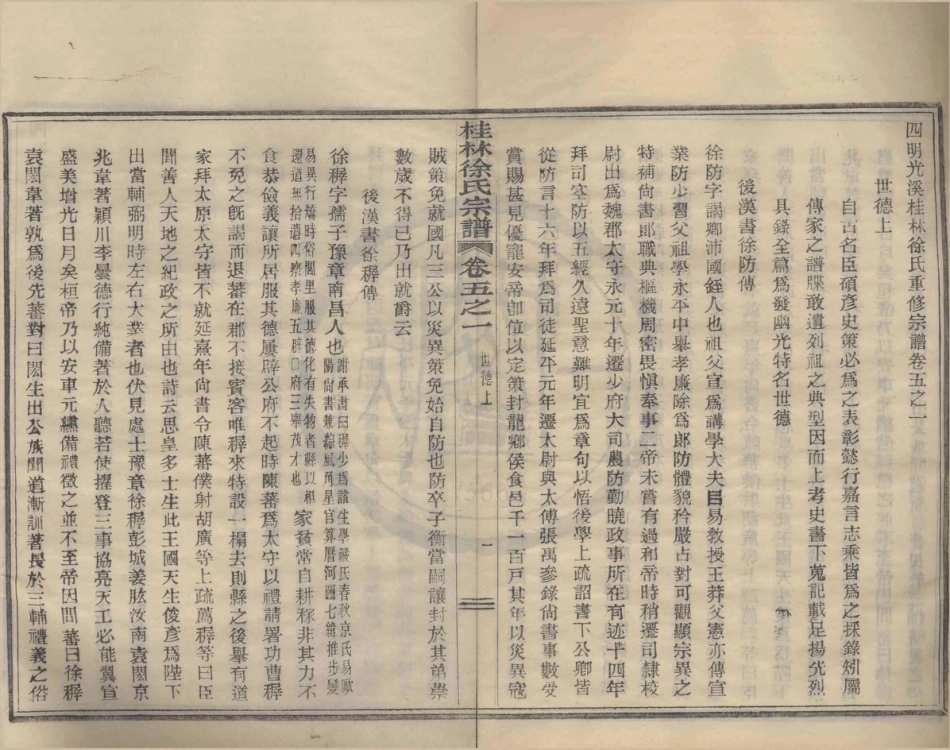 四明光溪桂林徐氏重修宗譜卷五之一
世德上
自古名臣碩彥史策必爲之表彰懿行嘉言志乘皆爲之採錄矧屬
傳家之譜牒敢遺列祖之典型因而上考史書下蒐記載足揚先烈
具錄全篇爲發幽光特名世德
後漢書徐防傳
徐防字謁卿沛國銍人也祖父宣爲講學大夫㠯易教授王莽父憲亦傳宣
業防少習父祖學永平中舉孝廉除爲郎防體貌矜嚴占對可觀顯宗異之
特補尚書郎職典樞機周密畏慎奉事二帝未嘗有過和帝時稍遷司隷校
尉出爲魏郡太守永元十年遷少府大司農防勤曉政事所在有迹十四年
拜司空防以五經久遠聖意難明宜爲章句以悟後學上疏詔書下公卿皆
從防言十六年拜爲司徒延平元年遷太尉與太傅張禹參錄尚書事數受
賞賜甚見優寵安帝卽位以定策封龍鄉侯食邑千一百戸其年以災異寇
桂林徐氏宗譜 卷五之一 世德上 一
賊策免就國凡三公以災異策免始自防也防卒子衡當嗣讓封於其弟崇
數歲不得已乃出就爵云
後漢書徐穉傳
徐穉字孺子豫章南昌人也謝承書曰穉少爲諸生學嚴氏春秋京氏易歐陽尚書兼綜風角星官算曆河圖七緯推步變易異行矯時俗閭里服其德化有失物者縣以相還道無拾遺四察孝廉五辟□府三舉茂才也家貧常自耕稼非其力不
食恭儉義讓所居服其德屢辟公府不起時陳蕃爲太守以禮請署功曹穉
不免之旣謁而退蕃在郡不接賓客唯穉來特設一榻去則縣之後舉有道
家拜太原太守皆不就延熹年尚書令陳蕃僕射胡廣等上疏薦穉等曰臣
聞善人天地之紀政之所由也詩云思皇多士生此王國天生俊彥爲陛下
出當輔弼明時左右大業者也伏見處士豫章徐穉彭城姜肱汝南袁閎京
兆韋著潁川李曇德行純備著於人聽若使擢登三事協亮天工必能翼宣
盛美增光日月矣桓帝乃以安車元纁備禮徵之並不至帝因問蕃曰徐穉
袁閎韋著孰爲後先蕃對曰閎生出公族聞道漸訓著長於三輔禮義之俗